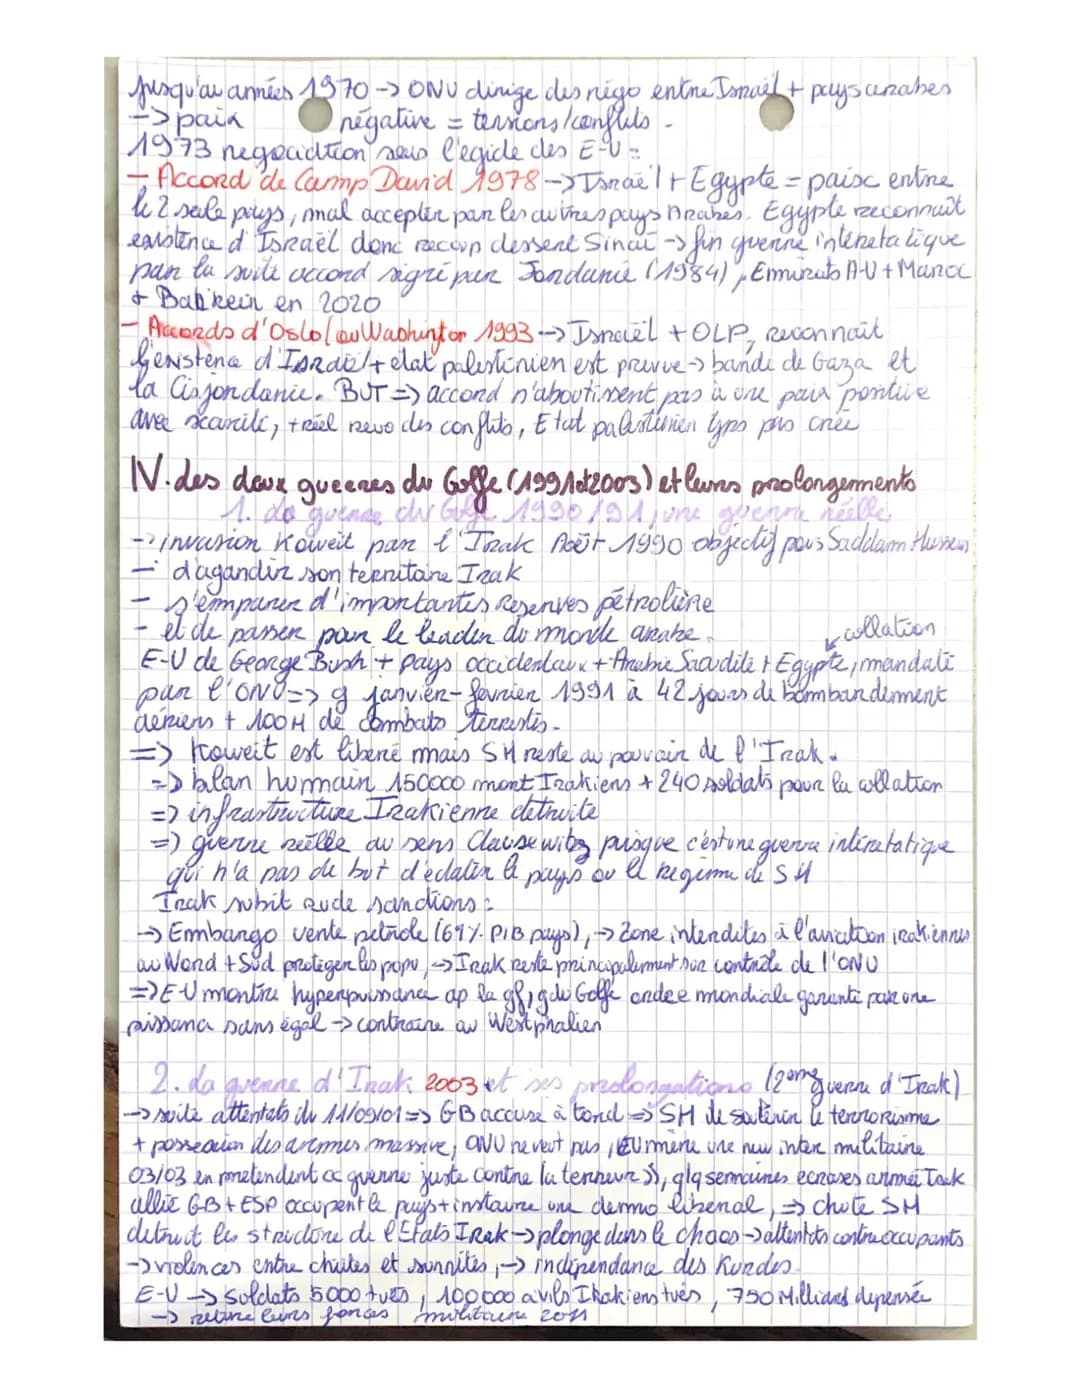 Jusqu'au années 1970 -> ONU dirige des négo entre Israël + pays arabes
-> paix négative = tensions/conflits -
1973 negociation sous l'egide des E-U =
- Accord de Camp David 1978 -> Israël + Egypte = paix entre
le 2 seule pays, mal accepter par les autres pays Arabes. Egypte reconnait
existence d'Israël donc recup desert Sinai -> fin guerre interetatique
par la suite accord signé par Jordanie (1984), Emirats A-U + Maroc
+ Bahrein en 2020
- Accords d'Oslo (ou Washington 1993 -> Israël + OLP, reconnait
l'existence d'Israël + etat palestinien est prevue -> bande de Gaza et
la Cisjordanie. BUT => accord n'aboutissent pas à une paix positive
avec sécurité, + réel reso des conflits, Etat palestinien tjrs pas créé
IV. des deux guerres du Golfe (1991 et 2003) et leurs prolongements
1. la guerre du Golfe 1990/91, une guerre réelle
-> invasion Koweit par l'Irak Août 1990 objectif pour Saddam Hussein
- d'agandir son territoire Irak
- s'emparer d'importantes reserves pétrolière
- et de passer pour le leader du monde arabe.
collation
E-U de George Bush + pays occidentaux + Arabie Saoudite + Egypte, mandaté
par l'ONU => g janvier-fevrier 1991 à 42 jours de bombardement
aériens + 100H de combats terrestres.
=> Koweit est liberé mais SH reste au pouvoir de l'Irak.
=> bilan humain 150000 mort Irakiens + 240 soldats pour la collation
=> infrastructure Irakienne detruite
=> guerre réelle au sens Clausewitz puisque c'est une guerre interetatique
qui n'a pas de but d'éclatir le pays ou le regime de SH
Irak subit rude sanctions :
-> Embargo vente petrole (69% PIB pays), -> Zone interdites à l'aviation irakiennes
au Nord + Sud proteger les popu, -> Irak reste principalement sur contrôle de l'ONU
=> E-U montre hyperpuissance ap la gf, g du Golfe ordre mondiale garanti par une
puissance sans égal -> contraire au Westphalien
2. la guerre d'Irak 2003 et ses prolongations (2eme guerre d'Irak)
-> suite attentats du 11/09/01 => GB accuse à tord => SH de soutenir le terrorisme
+ possession des armes massive, ONU ne veut pas, EU mène une new inter militaire
03/03 en pretendent « guerre juste contre la terreur », qlq semaines ecrases armée Irak
allié GB + ESP occupent le pays + instaure une démo liberal, => chute SH
detruit les structure de l'Etats Irak -> plonge dans le chaos -> attentats contre occupants
-> violences entre chiites et sunnites, -> indépendance des Kurdes.
E-U -> Soldats 5000 tués, 100 000 civils Irakiens tués, 750 Milliards depensée
-> retire leurs forces militaire 2011